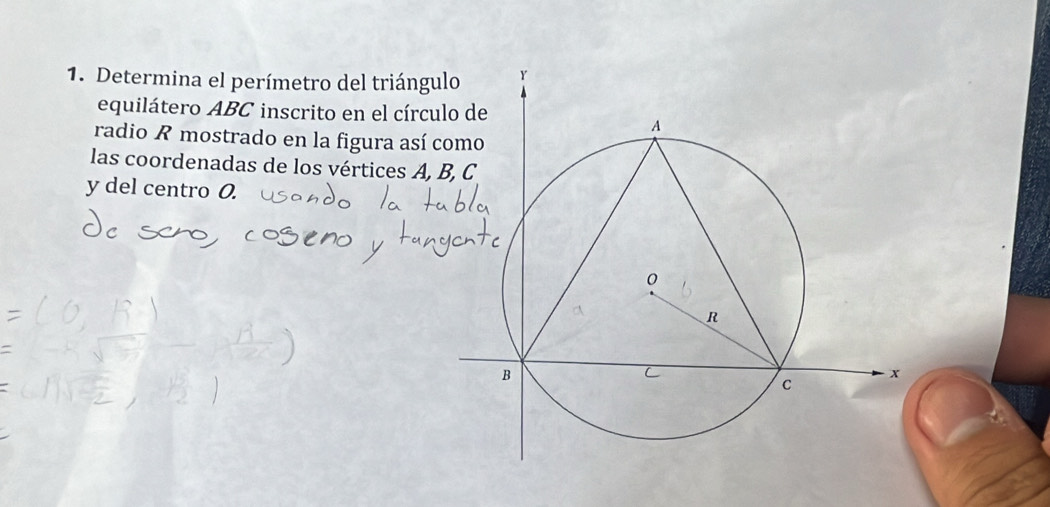 1. Determina el perímetro del triángulo
equilátero ABC inscrito en el círculo de
radio R mostrado en la figura así como
las coordenadas de los vértices A, B, C
y del centro O. usando la tabla
de seno, coseno y tangente
= (0, R)
Y
A
O
b
a
R
B
C
C
x